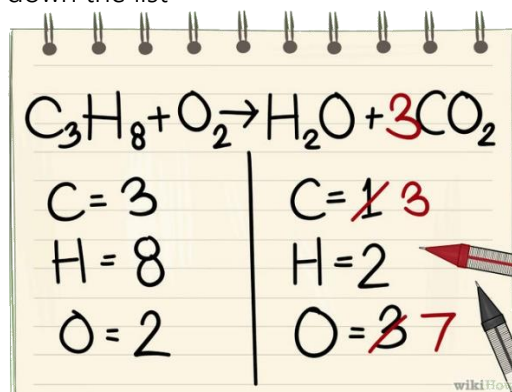 down the list
C₃H₈+O₂→H₂O+3CO₂
C=3 C=1 3
H=8 H=2
O=2 O=3 7
wikiHow